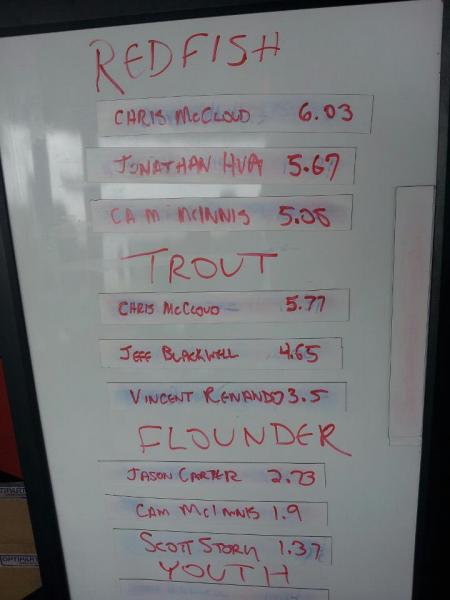 REDFISH
CHRIS McCLOUD 6.03
JONATHAN HUA 5.67
CAM McINNIS 5.05
TROUT
CHRIS McCLOUD 5.77
JEFF BLACKWELL 4.65
VINCENT RENANDO 3.5
FLOUNDER
JASON CARTER 2.73
CAM McINNIS 1.9
SCOTT STORY 1.37
YOUTH